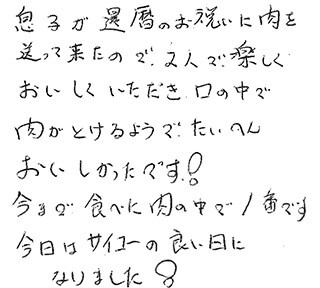 息子が還暦のお祝いに肉を
送って来たので、2人で楽しく
おいしくいただき口の中で
肉がとけるようで、たいへん
おいしかったです!
今まで食べた肉の中で1番です
今日はサイコーの良い日に
なりました!